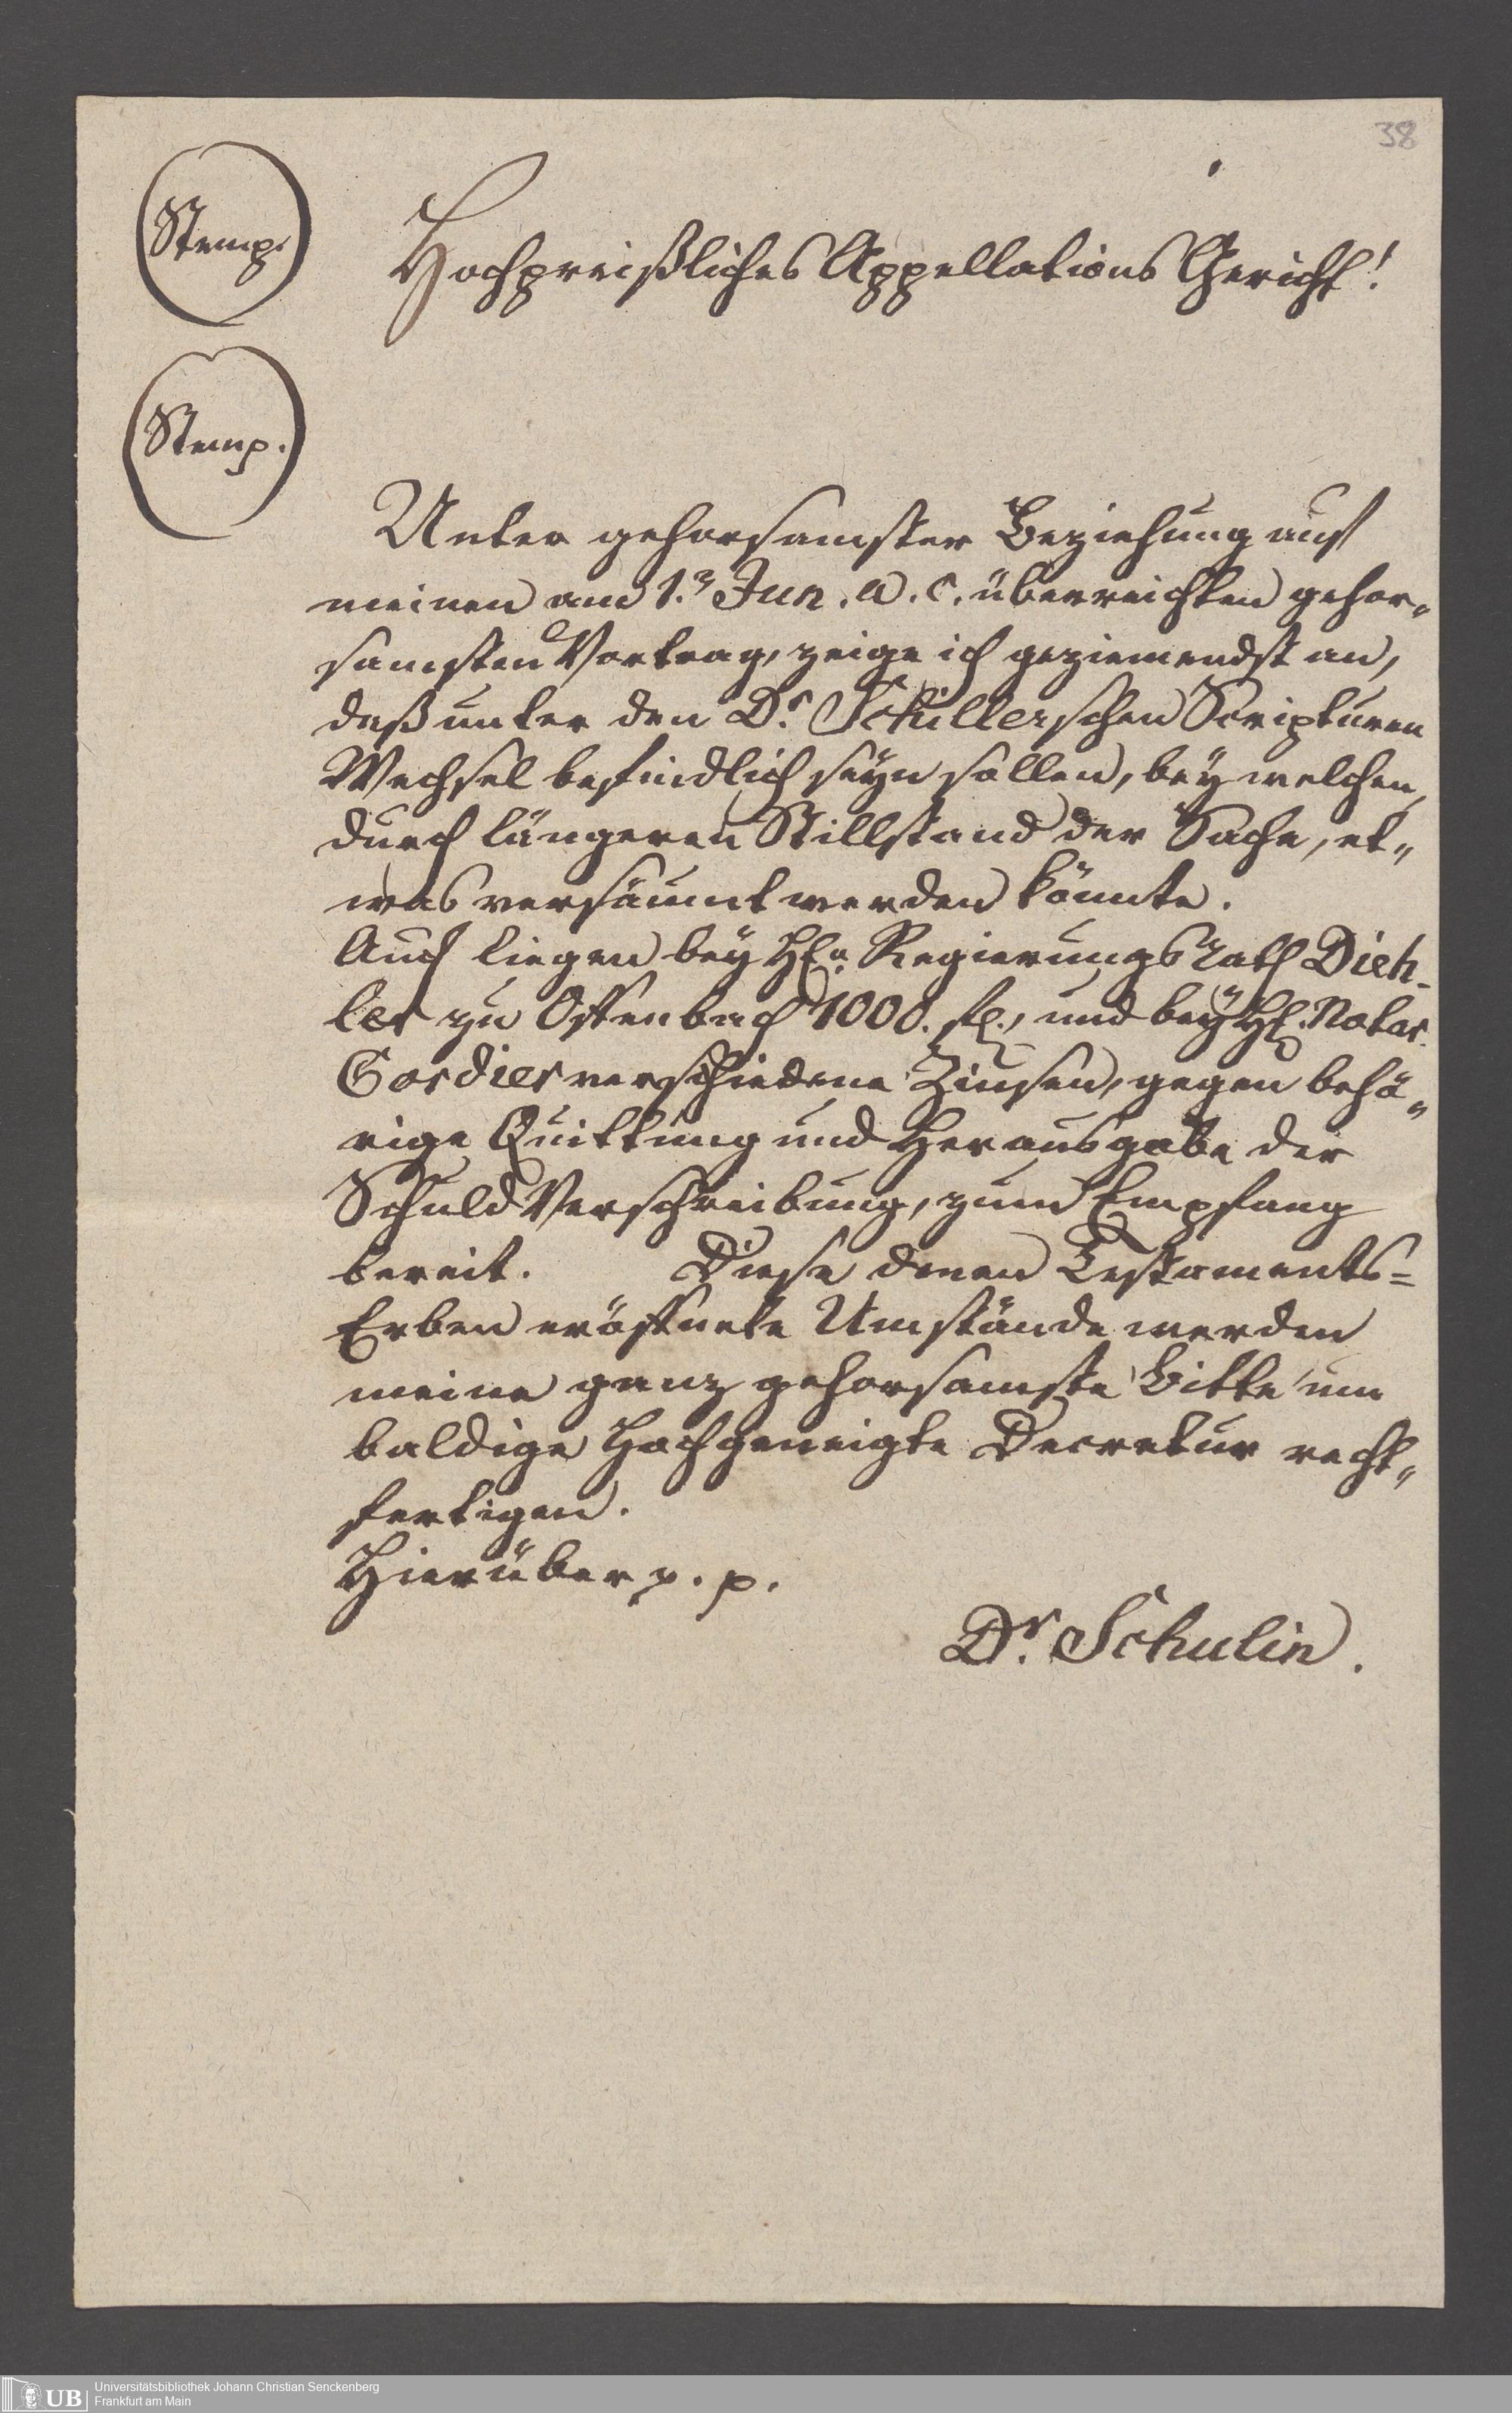 38
Stemp.
Hochpreißliches Appellations Gericht!
Stemp.
Unter gehorsamster Beziehung auf
meinen am 1.n Jun. a. c. überreichten gehor„
samsten Vortrag, zeige ich geziemendst an,
daß unter den Dr. Schillerschen Scripturen
Wechsel befindlich seyn sollen, bey welchen,
durch längeren Stillstand der Sache, et„
was versäumt werden könnte.
Auch liegen bey Hr. Regierungsrath Dieh-
ler zu Offenbach 1000. fl., und bey H. Notar.
Gordier verschiedene Zinsen, gegen behö„
rige Quittung und Herausgabe der
Schuld Verschreibung, zum Empfang
bereit. Diese denen Testaments=
Erben eröffnete Umstände werden
meine ganz gehorsamste Bitte um
baldige Hochgeneigte Decretur recht„
fertigen.
Hierüber p. p.
Dr. Schulin.
UB
Universitätsbibliothek Johann Christian Senckenberg
Frankfurt am Main